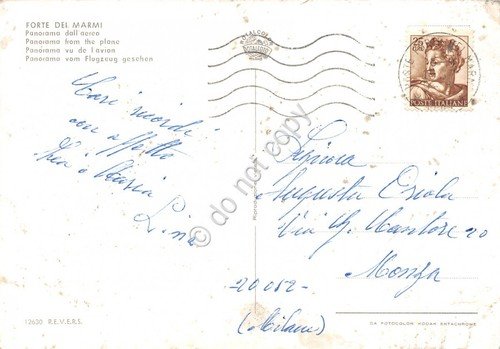 FORTE DEI MARMI
Panorama dall'aereo
Panorama from the plane
Panorama vu de l'avion
Panorama vom Flugzeug gesehen
POSTE ITALIANE
Cari ricordi
con affetto
Maria
Lina
Signora
Augusta Oriola
Via G. Mantore 20
Monza
20052 -
(Milano)
do not copy
12630 R.E.V.E.R.S.
DA FOTOCOLOR KODAK EKTACHROME